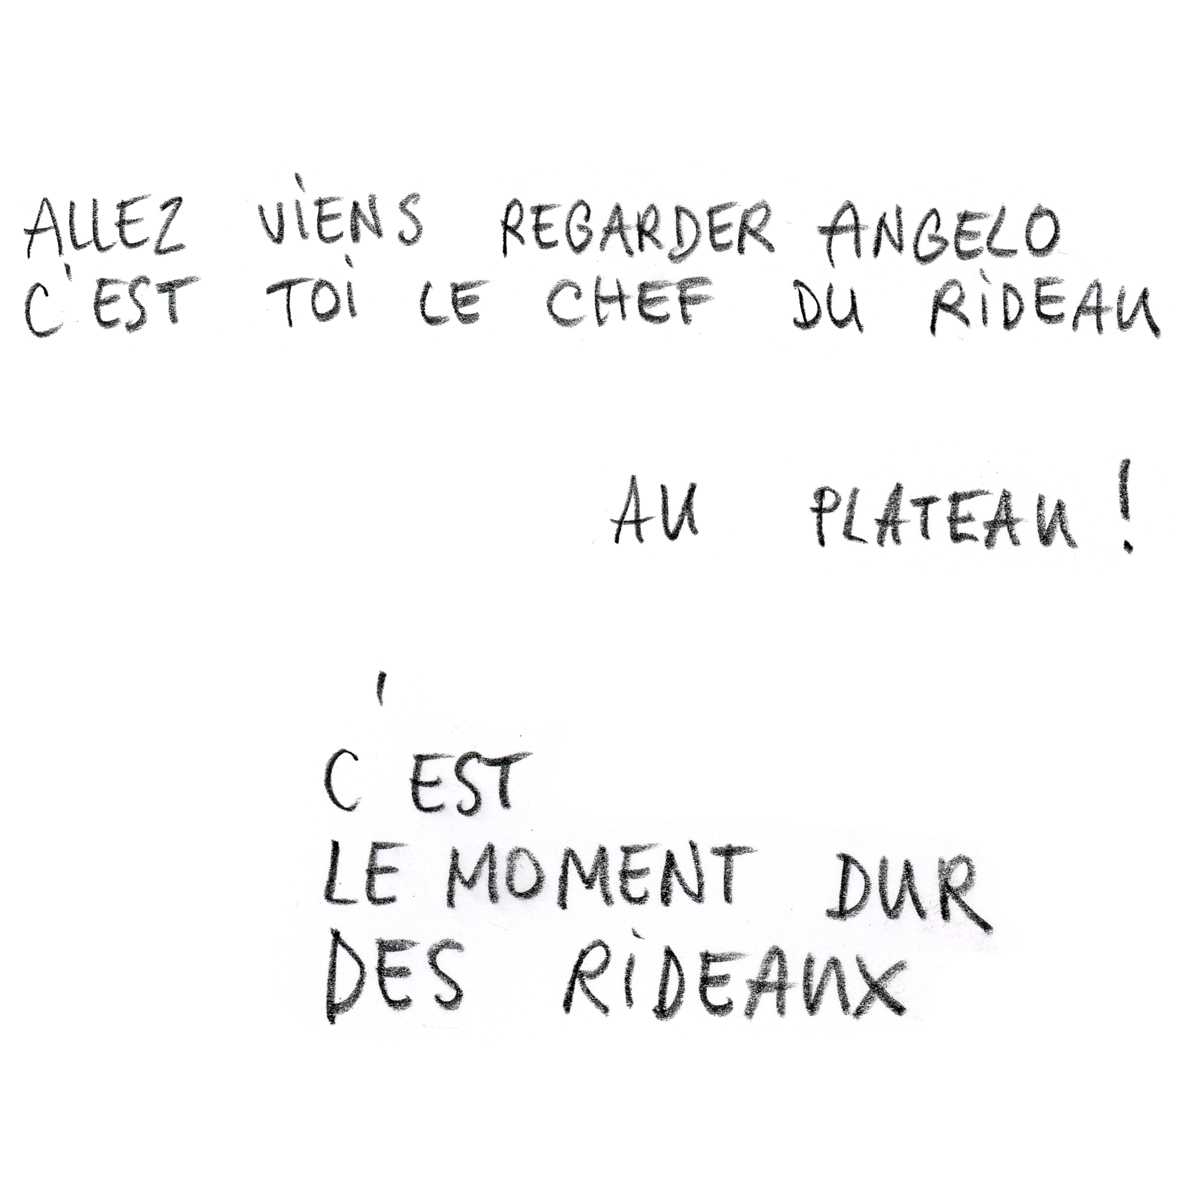 ALLEZ VIENS REGARDER ANGELO
C'EST TOI LE CHEF DU RIDEAU
AU PLATEAU !
C'EST
LE MOMENT DUR
DES RIDEAUX